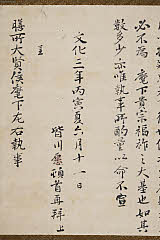 必不為 麾下貴宗福祚之大基也如其
數多少亦唯執事所酌量以命不宣
文化三年丙寅夏六月十一日
皆川愿頓首再拜上
膳所大賢侯麾下左右執事